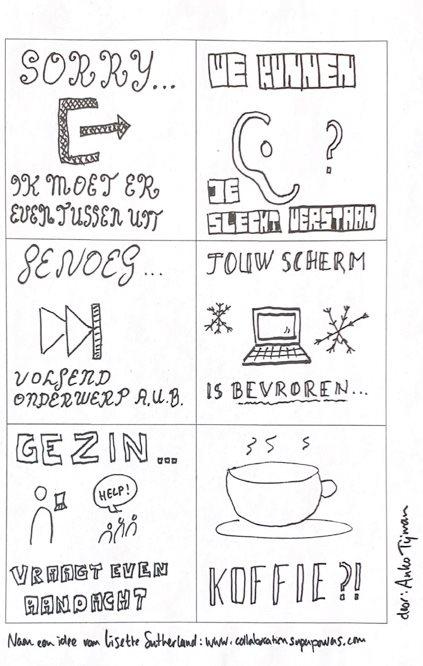 SORRY...
IK MOET ER
EVEN TUSSEN UIT
WE KUNNEN
?
JE
SLECHT VERSTAAN
GENOEG...
VOLGEND
ONDERWERP A.U.B.
JOUW SCHERM
IS BEVROREN...
GEZIN...
HELP!
VRAAGT EVEN
AANDACHT
KOFFIE?!
door: Anko Tijman
Naar een idee van Lisette Sutherland: www.collaborationsuperpowers.com